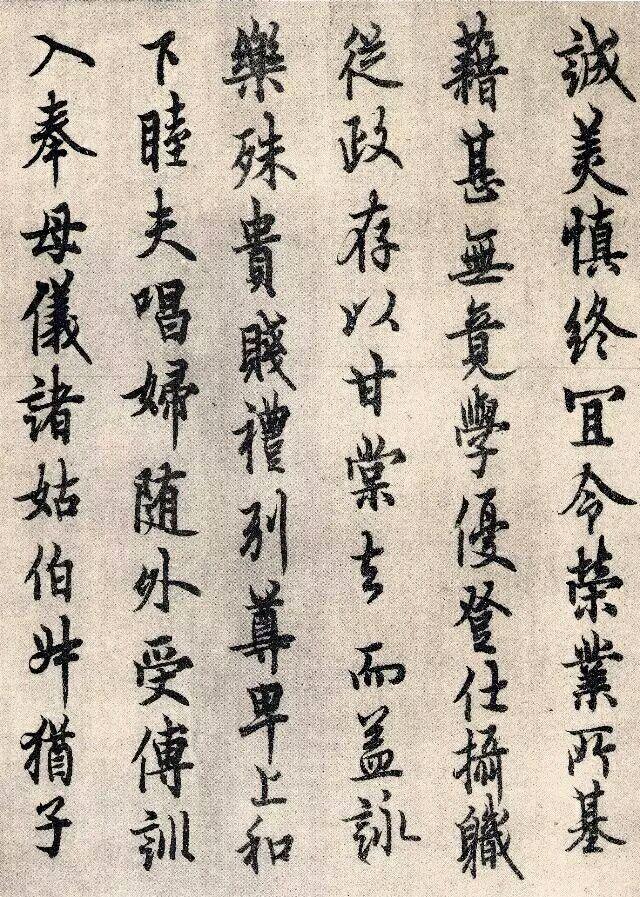 誠美慎終宜令榮業所基
藉甚無竟學優登仕攝職
從政存以甘棠去而益詠
樂殊貴賤禮別尊卑上和
下睦夫唱婦随外受傅訓
入奉母儀諸姑伯叔猶子